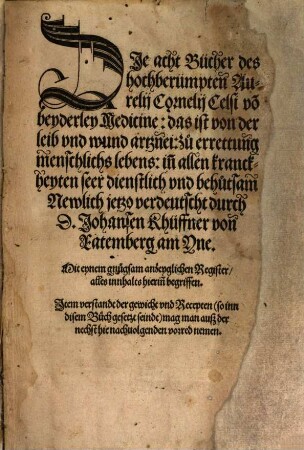 DIe acht Bücher des
hochberümpten Au-
relij Cornelij Celsi vō
beyderley Medicine: das ist von der
leib vnd wund artznei: zů errettung
menschlichs lebens: iñ allen kranck-
heyten seer dienstlich vnd behůtsam
Newlich jetzo verdeutscht durch
D. Johansen Khüffner von
Ratemberg am Yne.
Mit eynem gnůgsam anzeyglichen Register/
alles innhalts hieriñ begriffen.
Item verstandt der gewicht vnd Recepten (so inn
disem Bůch gesetzt seindt) mag man auß der
nechst hie nachuolgenden vorred nemen.